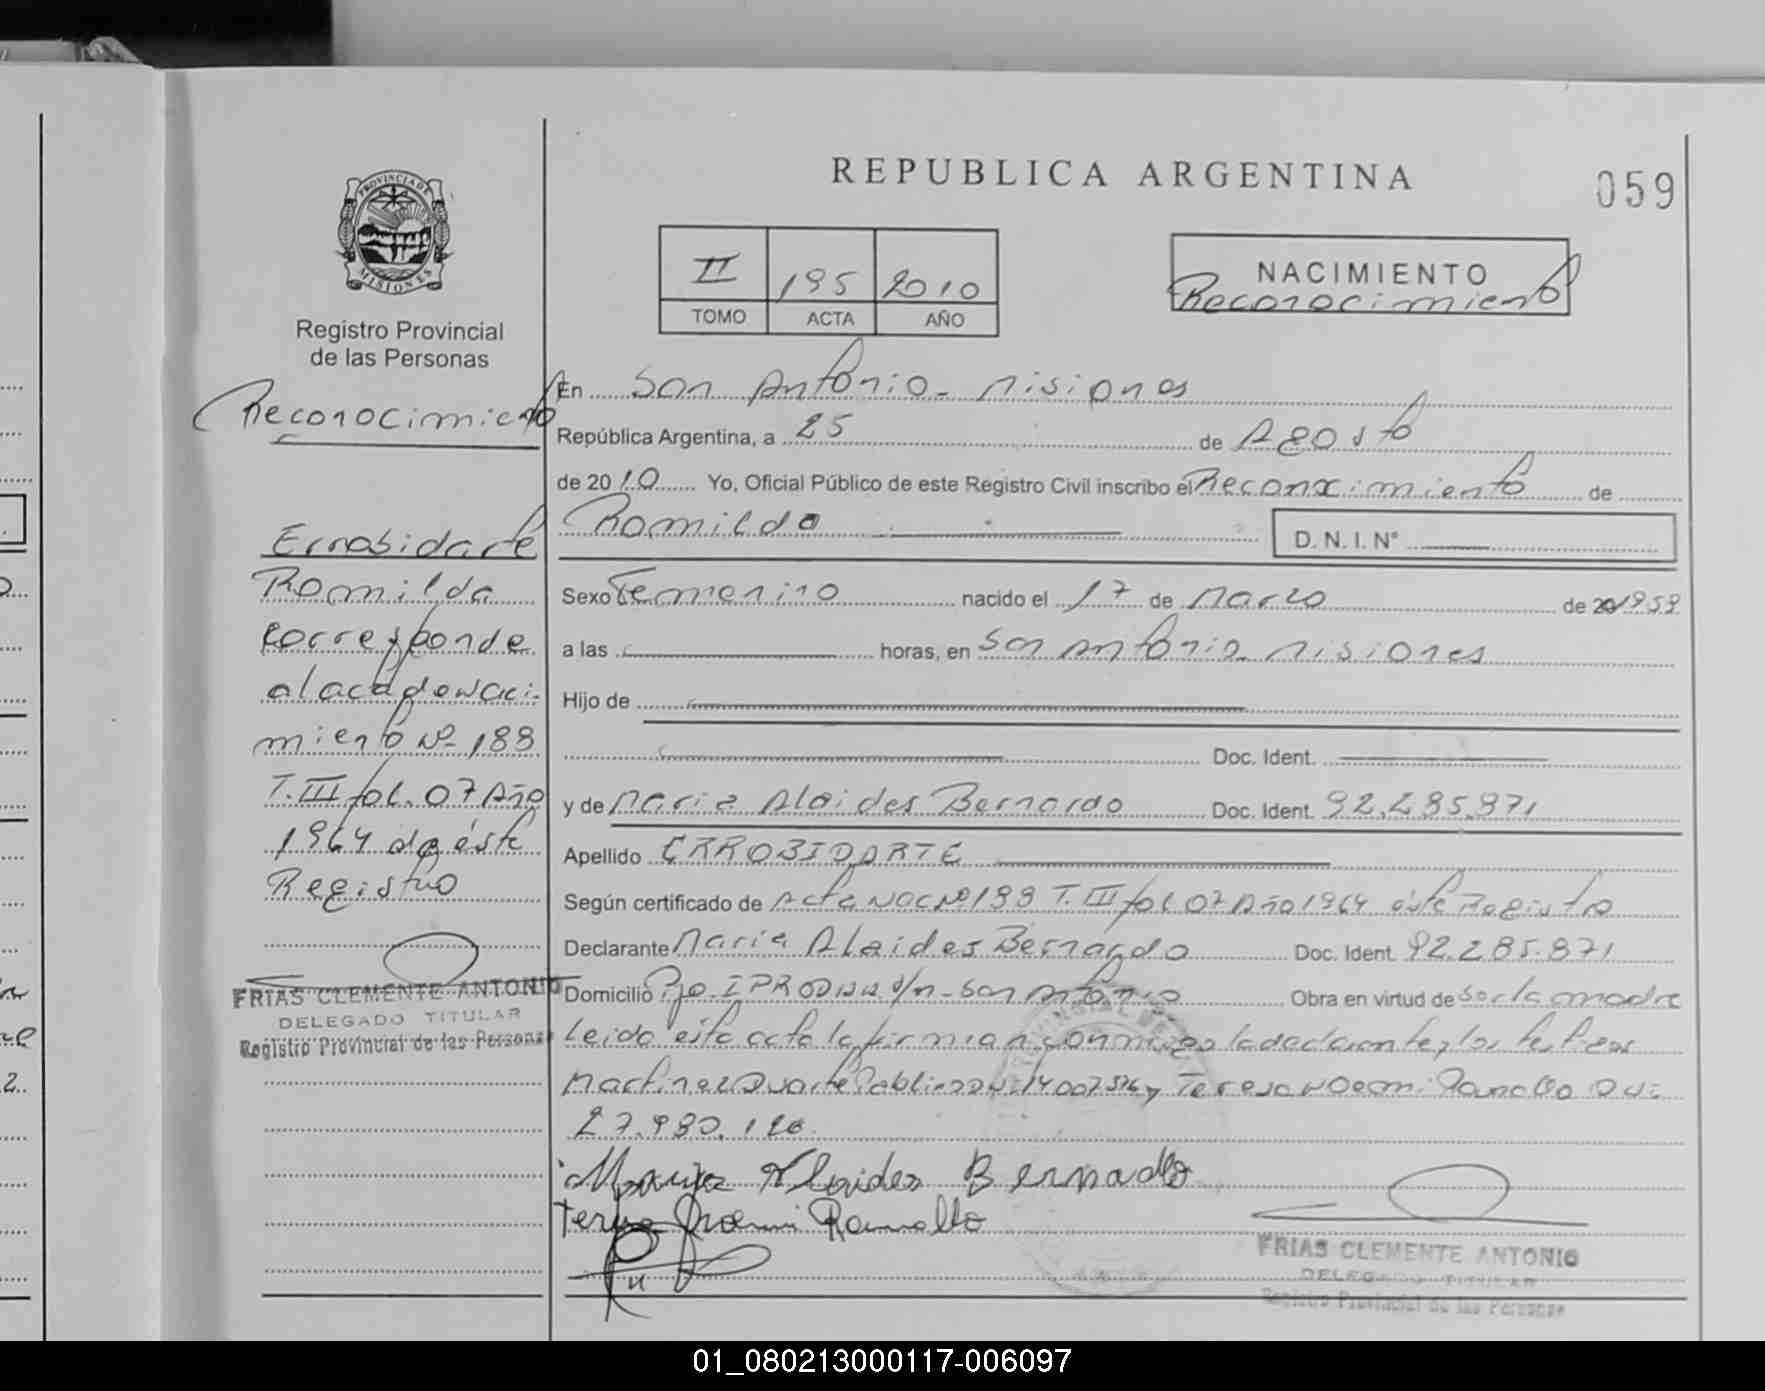 REPUBLICA ARGENTINA
059
PROVINCIA DE
MISIONES
Registro Provincial
de las Personas
II 195 2010
TOMO ACTA AÑO
NACIMIENTO
Reconocimiento
Reconocimiento
Errobidarte
Romilda
corresponde
al acta de naci-
miento Nº 188
T. III fol. 07 Año
1964 de éste
Registro
FRIAS CLEMENTE ANTONIO
DELEGADO TITULAR
Registro Provincial de las Personas
En San Antonio - Misiones
República Argentina, a 25 de Agosto
de 2010 Yo, Oficial Público de este Registro Civil inscribo el Reconocimiento de
Romilda D.N.I. N°
Sexo Femenino nacido el 17 de Marzo de 1959
a las horas, en San Antonio - Misiones
Hijo de
Doc. Ident.
y de Maria Alaides Bernardo Doc. Ident. 92.285.871
Apellido ERROBIDARTE
Según certificado de Acta Nac Nº 188 T. III fol 07 Año 1964 éste Registro
Declarante Maria Alaides Bernardo Doc. Ident. 92.285.871
Domicilio s/n - San Antonio Obra en virtud de ser la madre
Leida esta acta la firman conmigo la declarante y los testigos
Martinez Duarte Pablino DNI 14007576 y Teresa Noemi Ramallo DNI
27.980.120
Maria Alaides Bernardo
Teresa Noemi Ramallo
FRIAS CLEMENTE ANTONIO
DELEGADO TITULAR
Registro Provincial de las Personas
01_080213000117-006097